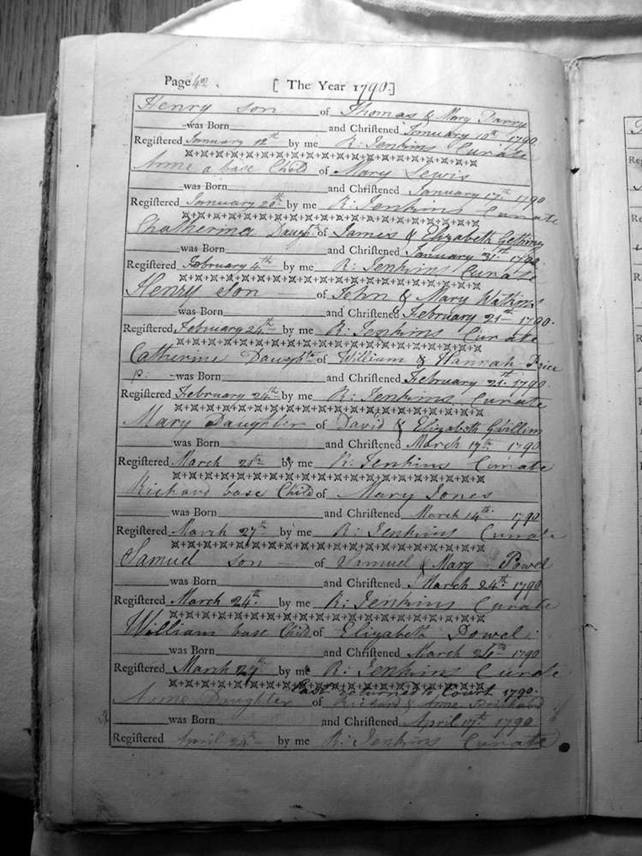 Page 42. [ The Year 1790. ]
Henry son of Thomas & Mary Parry
was Born and Christened January 10th 1790
Registered January 12th by me R: Jenkins Curate
Anne a base Child of Mary Lewis
was Born and Christened January 17th 1790
Registered January 20th by me R: Jenkins Curate
Chatherina Daugr. of James & Elizabeth Gething
was Born and Christened January 31st 1790
Registered February 4th by me R: Jenkins Curate
Henry Son of John & Mary Watkins
was Born and Christened February 21st 1790.
Registered February 24th by me R: Jenkins Curate
Catherine Daughtr of William & Hannah Price
p: was Born and Christened February 21st 1790
Registered February 24th by me R: Jenkins Curate
Mary Daughter of David & Elizabeth Gwillim
was Born and Christened March 17th 1790
Registered March by me R: Jenkins Curate
Richard base Child of Mary Jones
was Born and Christened March 14th 1790
Registered March 27th by me R: Jenkins Curate
Samuel son of Samuel & Mary Powel
was Born and Christened March 24th 1790
Registered March 24th by me R: Jenkins Curate
William base Child of Elizabeth Powel:
was Born and Christened March 1790
Registered March by me R: Jenkins Curate
Court 1790.
Anne Daughter of Richard & Anne
was Born and Christened April 1790
Registered April by me R: Jenkins Curate